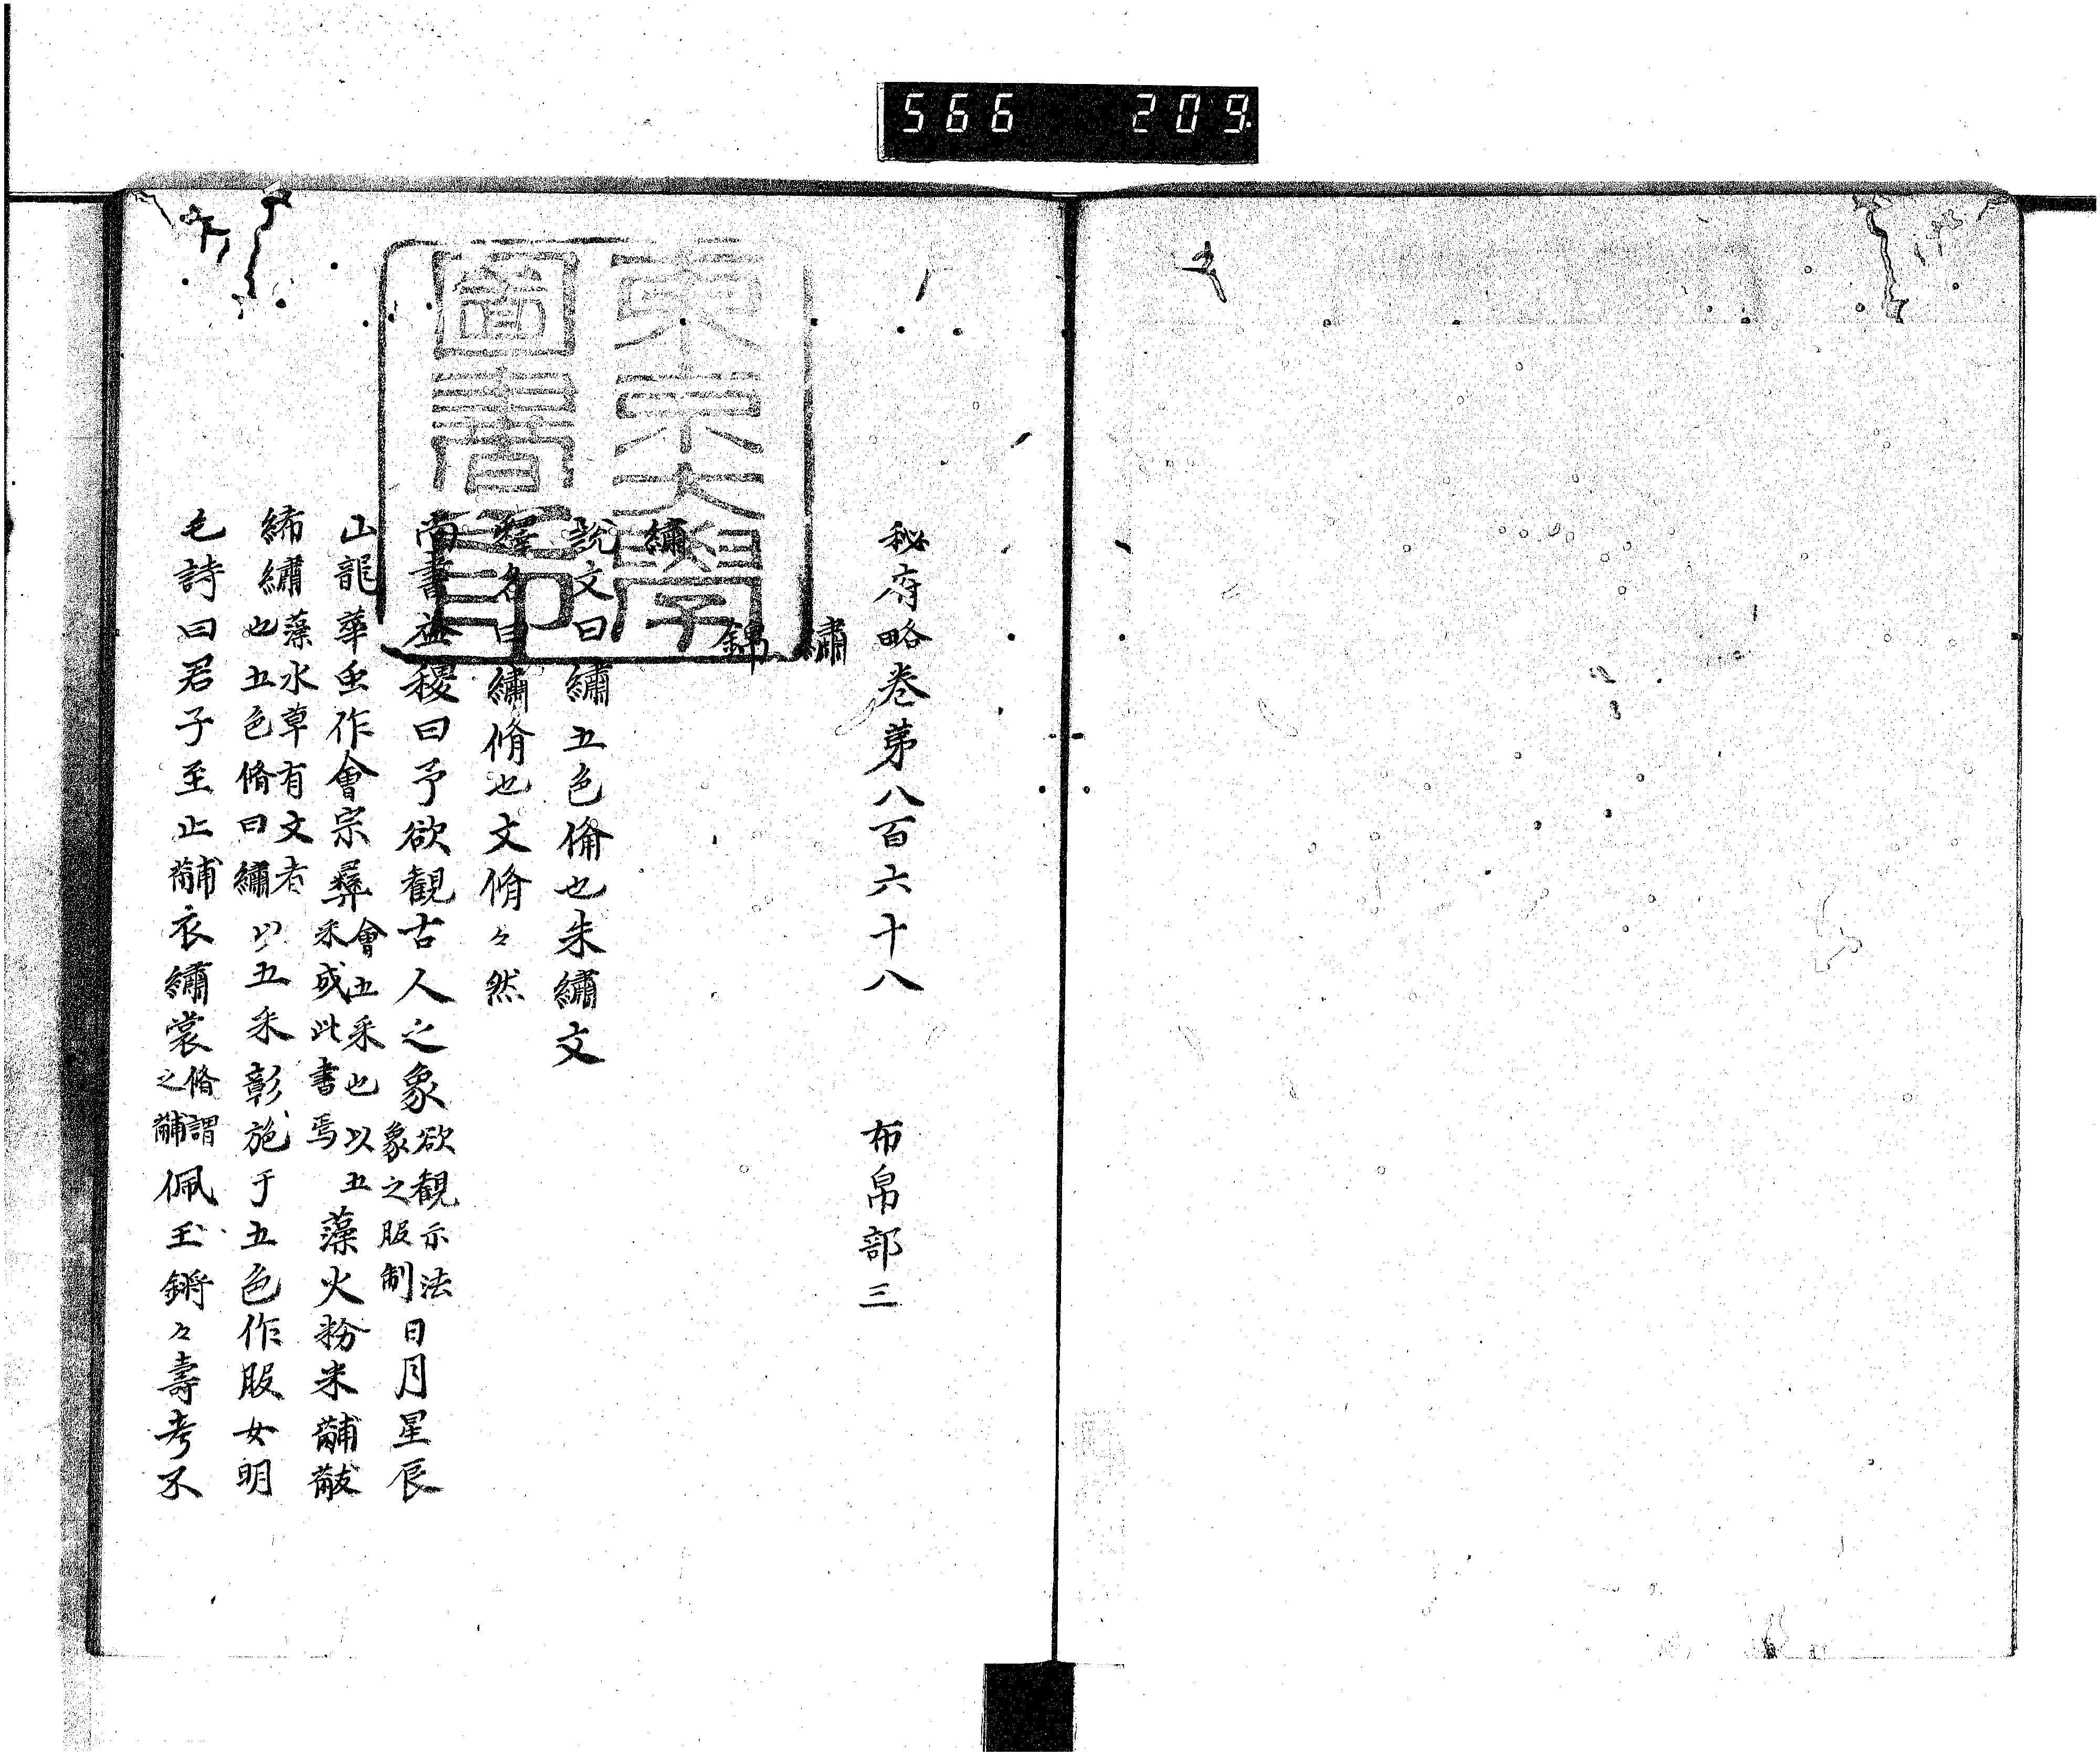 566 209
秘府略巻第八百六十八 布帛部三
繡
錦
繡
説文曰繡五色俻也朱繡文
釋名曰繡脩也文脩々然
尚書益稷曰予欲観古人之象欲観示法象之服制日月星辰
山龍華虫作會宗彝會五采也以五采成此書焉藻火粉米黼黻
絺繡藻水草有文者也五色脩曰繡以五采彰施于五色作服女明
毛詩曰君子至止黼衣繡裳脩謂之黼佩玉鏘々壽考不
東京大學圖書之印